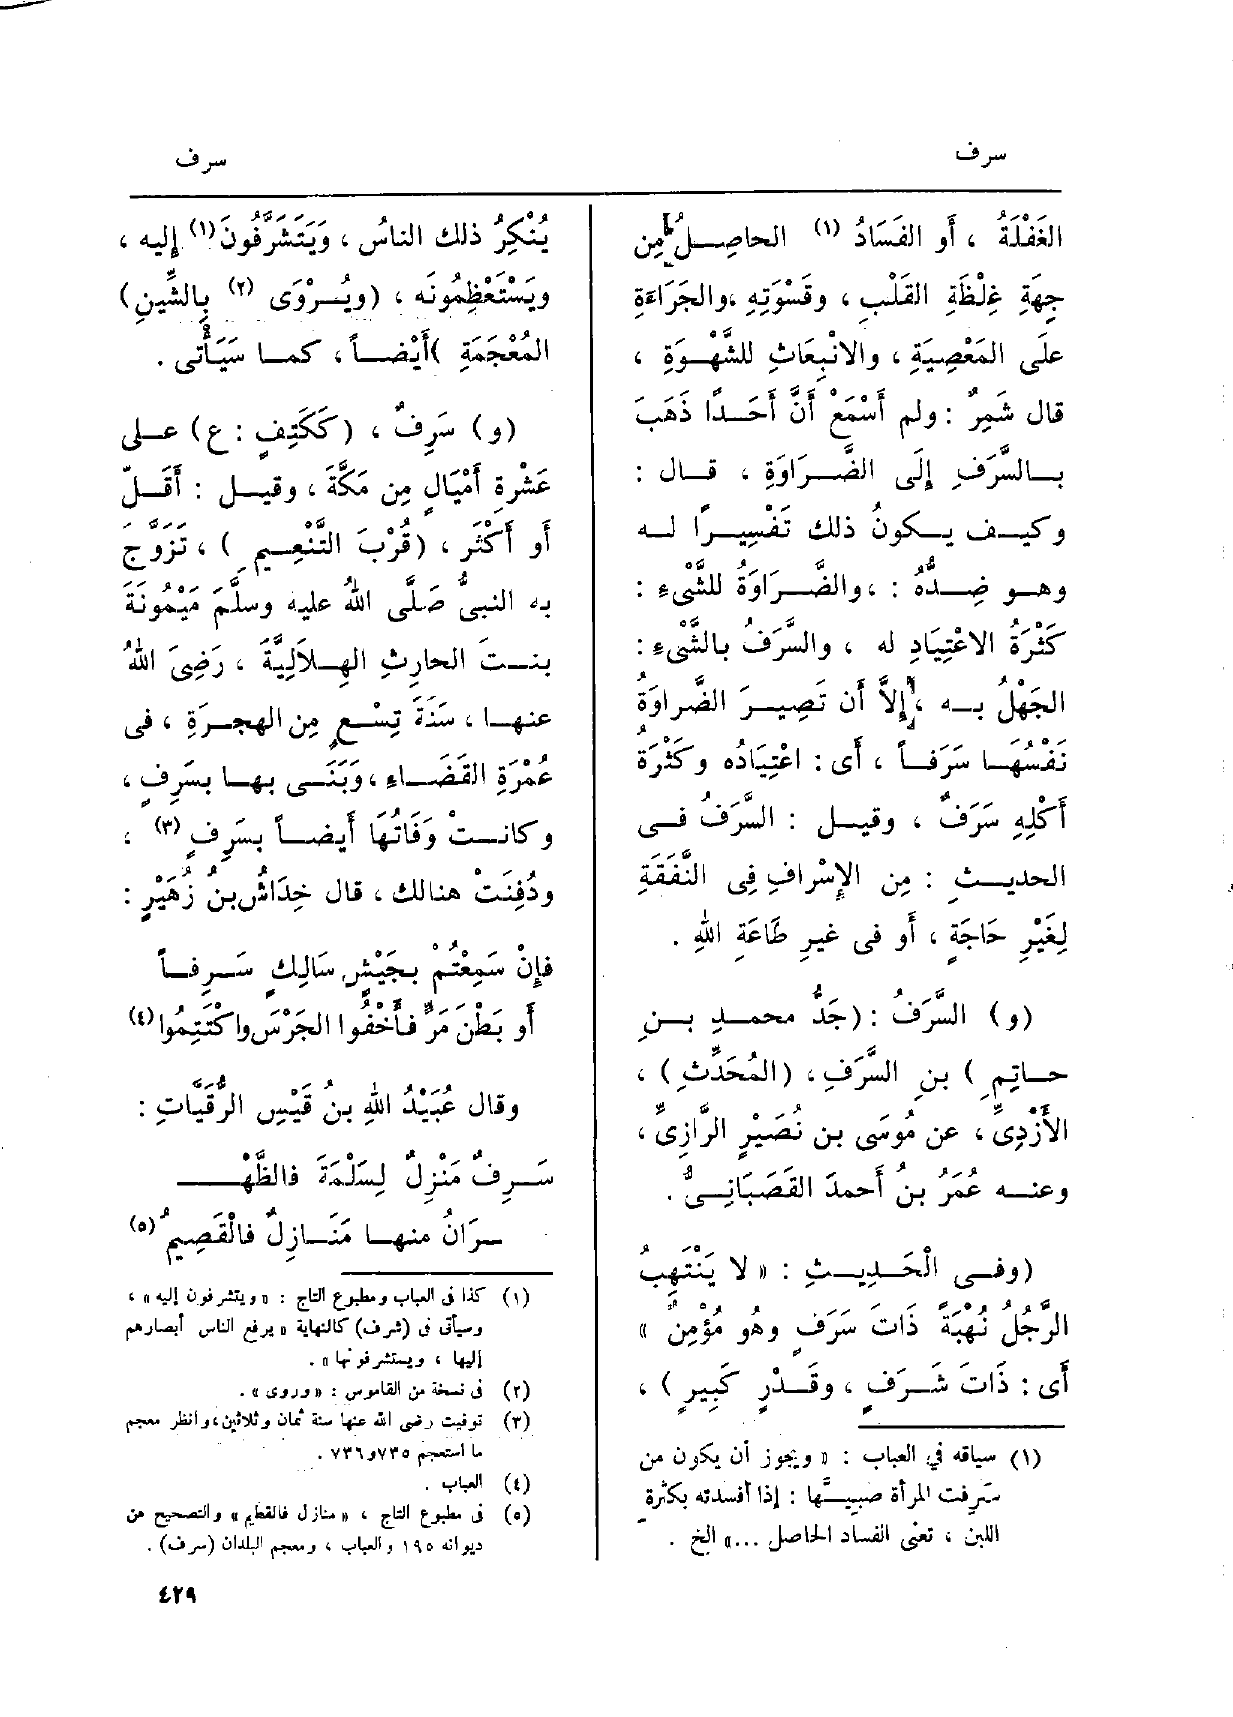 سرف
الغَفْلَةُ ، أو الفَسَادُ (١) الحاصِلُ مِن
جِهَةِ غِلْظَةِ القَلْبِ ، وقَسْوَتِهِ ،والجَرَاءَةِ
علَى المَعْصِيَةِ ، والانْبِعَاثِ للشَّهْوَةِ ،
قال شَمِرٌ : ولم أَسْمَعْ أَنَّ أَحَدًا ذَهَبَ
بالسَّرَفِ إِلَى الضَّرَاوَةِ ، قال :
وكيف يكونُ ذلك تَفْسِيرًا له
وهو ضِدُّهُ : ،والضَّرَاوَةُ للشَّىءِ :
كَثْرَةُ الاعْتِيَادِ له ، والسَّرَفُ بالشَّىءِ :
الجَهْلُ به ،إِلاَّ أن تَصِيرَ الضَّراوَةُ
نَفْسُهَا سَرَفاً ، أَى : اعْتِيَادُه وكَثْرَةُ
أَكْلِهِ سَرَفٌ ، وقيل : السَّرَفُ فى
الحديثِ : مِن الإِسْرافِ فِى النَّفَقَةِ
لِغَيْرِ حَاجَةٍ ، أو فى غيرِ طَاعَةِ اللهِ .
(و) السَّرَفُ : (جَدُّ محمدِ بنِ
حاتِمِ ) بنِ السَّرَفِ ، (المُحَدِّثِ ) ،
الأَزْدِىِّ ، عن مُوسَى بن نُصَيْرٍ الرَّازِىِّ ،
وعنه عُمَرُ بنُ أحمدَ القَصَبَانِىُّ .
(وفى الْحَدِيثِ : « لا يَنْتَهِبُ
الرَّجُلُ نُهْبَةً ذَاتَ سَرَفٍ وهُو مُؤْمِنٌ »
أى : ذَاتَ شَرَفٍ ، وقَدْرٍ كَبِيرٍ ) ،
(١) سياقه في العباب : « ويجوز أن يكون من
سَرِفت المرأة صبيَّها : إذا أفسدته بكثرةِ
اللبن ، تعنى الفساد الحاصل ...» الخ .
سرف
يُنْكِرُ ذلك الناسُ ، وَيَتَشَرَّفُونَ(١) إليه ،
ويَسْتَعْظِمُونَه ، (ويُرْوَى (٢) بِالشِّينِ)
المُعْجَمَةِ )أَيْضاً ، كما سَيَأْتِى .
(و) سَرِفٌ ، (ككَتِفٍ : ع) على
عَشْرةِ أَمْيَالٍ مِن مَكَّةَ ، وقيل : أَقَلّ
أو أَكْثَر ، (قُرْبَ التَّنْعِيمِ ) ، تَزَوَّجَ
به النبىُّ صَلَّى اللهُ عليه وسلَّمَ مَيْمُونَةَ
بنتَ الحارِثِ الهِلاَلِيَّةَ ، رَضِىَ اللهُ
عنها ، سَنَةَ تِسْعٍ مِن الهِجرَةِ ، فى
عُمْرَةِ القَضَاءِ ،وَبَنَى بها بسَرِفٍ ،
وكانتْ وَفَاتُهَا أَيضاً بسَرِفٍ (٣) ،
ودُفِنَتْ هنالك ، قال خِدَاشُ بن زُهَيْرٍ :
فإِنْ سَمِعْتُمْ بجَيْشٍ سَالِكٍ سَرِفاً
أو بَطْنَ مَرٍّ فأَخْفُوا الجَرْسَ واكْتَتِمُوا(٤)
وقال عُبَيْدُ اللهِ بنُ قَيْسِ الرُّقَيَّاتِ :
سَرِفٌ مَنْزِلٌ لِسَلْمَةَ فالظَّهْـ
ـرَانُ منها مَنَازِلٌ فالْقَصِيمُ (٥)
(١) كذا فى العباب ومطبوع التاج : « ويتشرفون إليه » ،
وسيأتى فى (شرف) كالنهاية « يرفع الناس أبصارهم
إليها ، ويستشرفونها » .
(٢) فى نسخة من القاموس : « وروى » .
(٣) توفيت رضى الله عنها سنة ثمان وثلاثين ، وانظر معجم
ما استعجم ٧٣٥و٧٣٦ .
(٤) العباب .
(٥) فى مطبوع التاج ، « منازل فالقطيم » والتصحيح من
ديوانه ١٩٥ والعباب ، ومعجم البلدان (سرف) .
٤٢٩